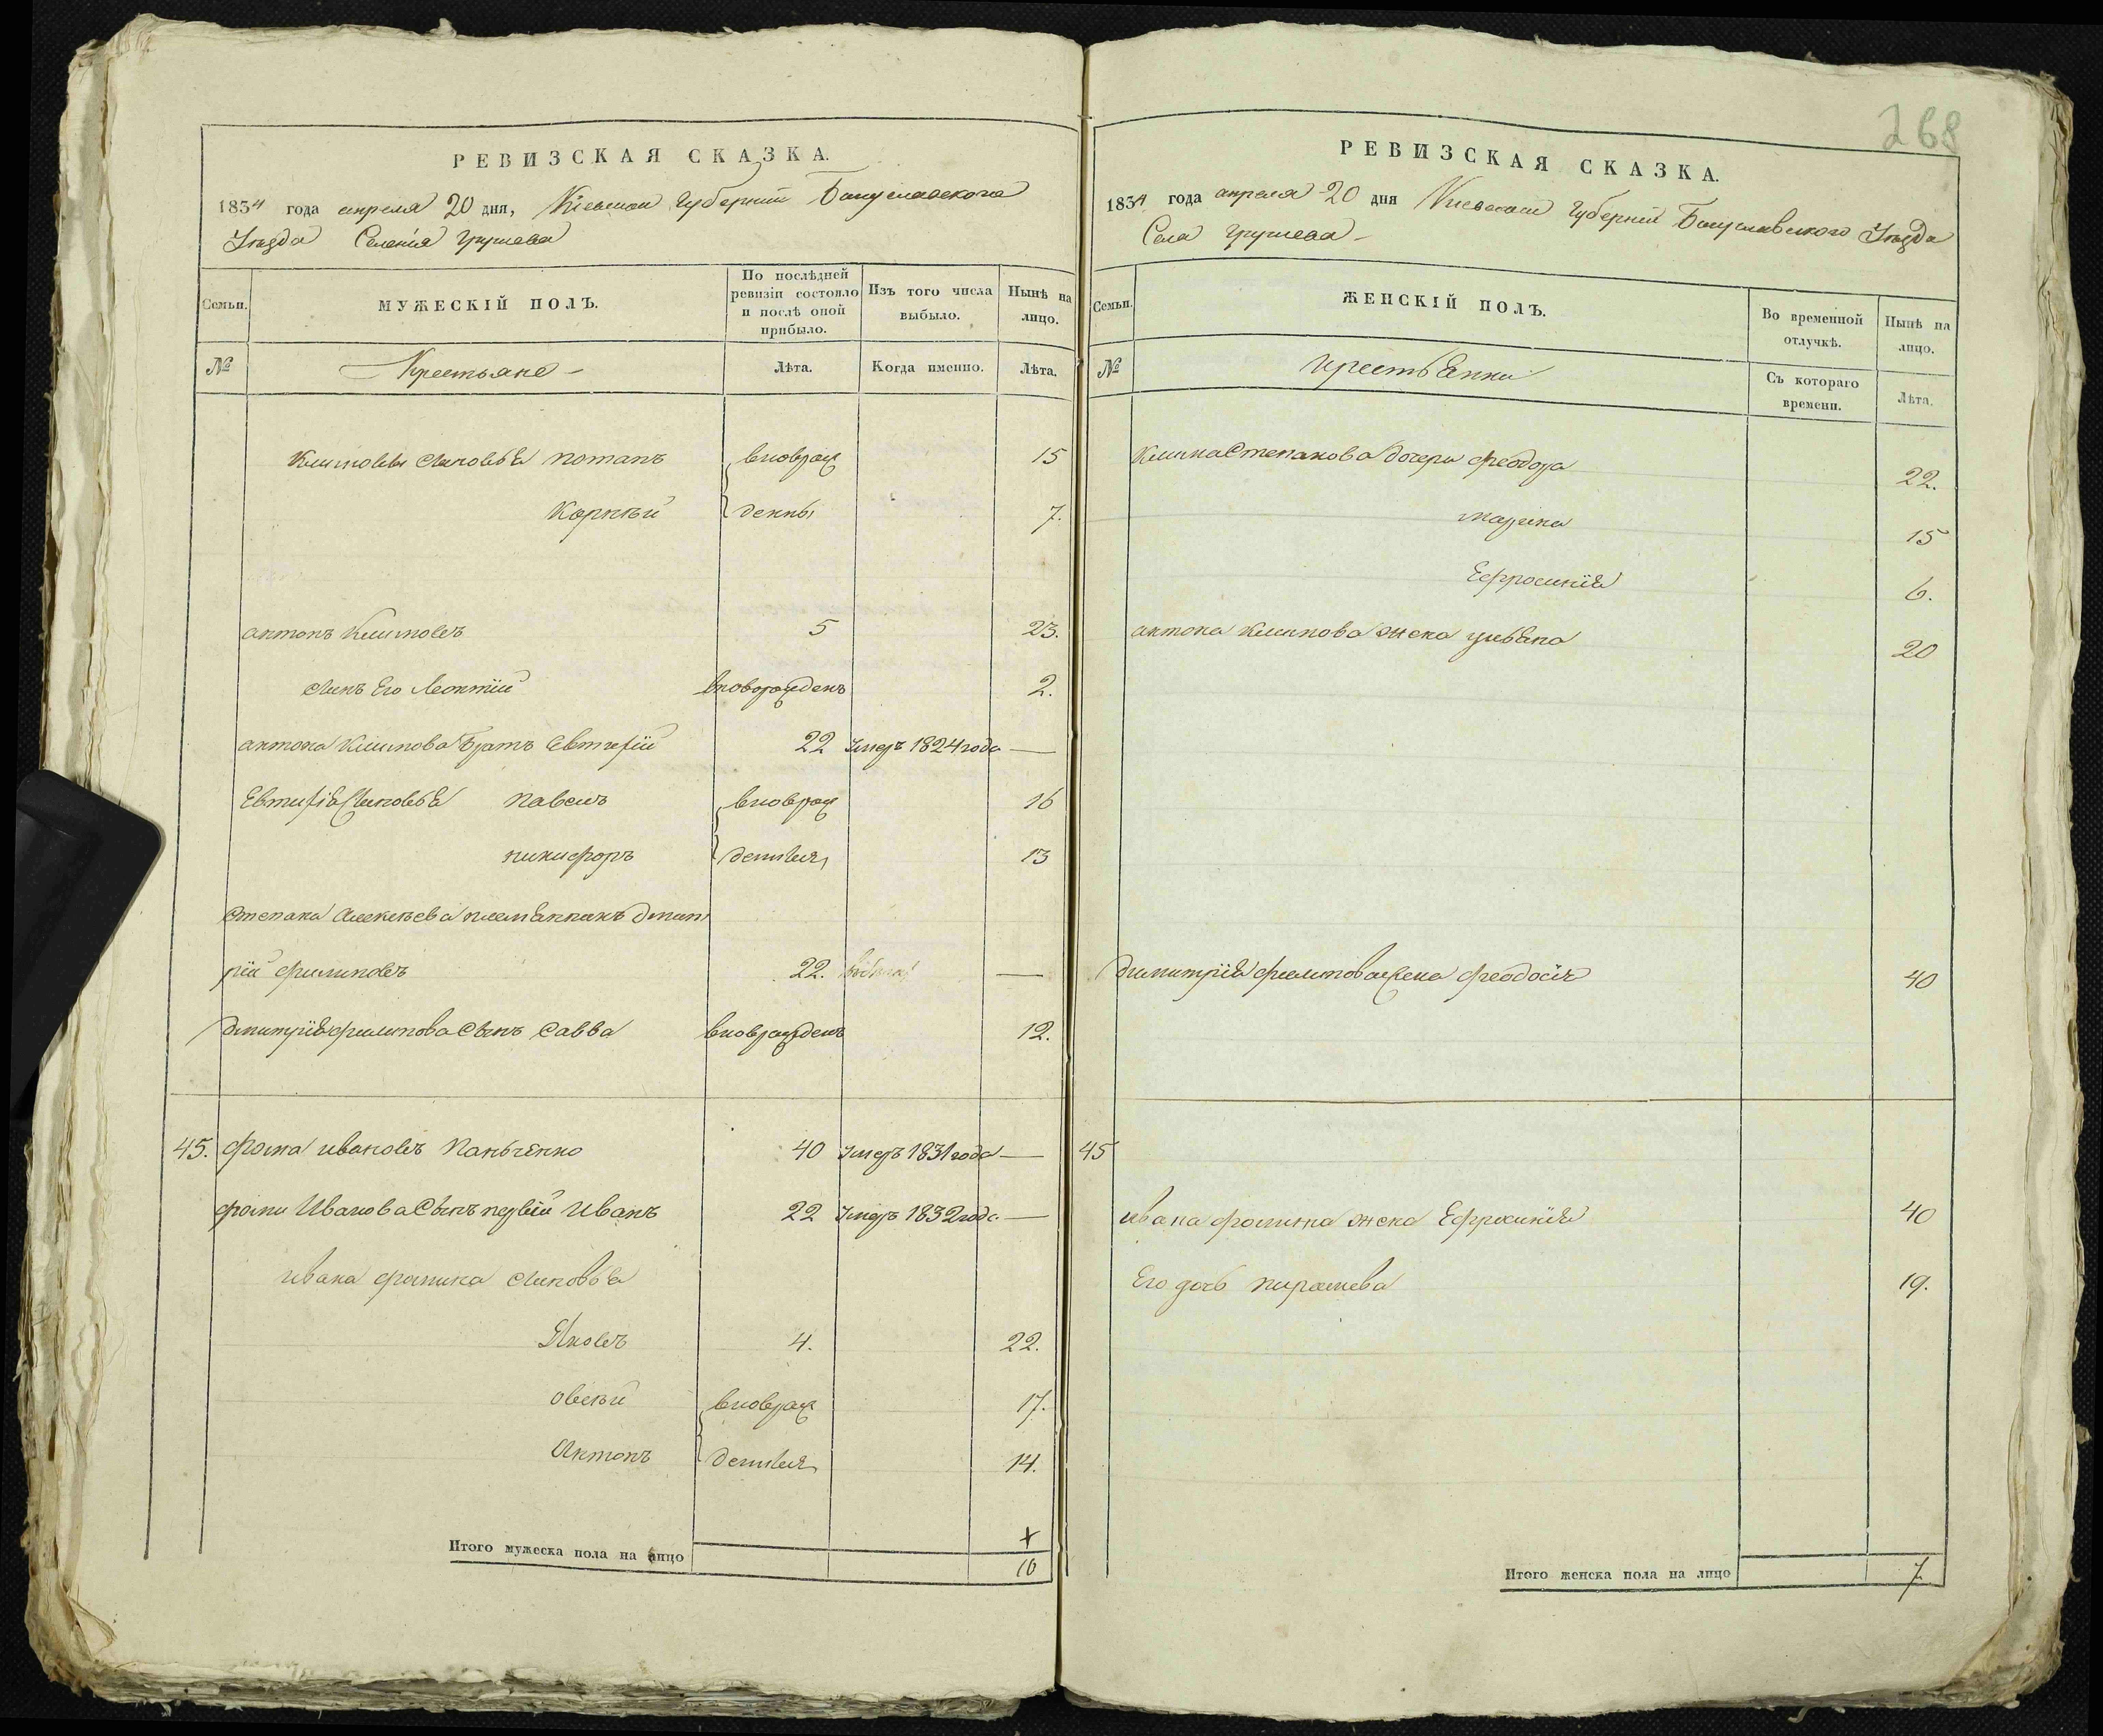 РЕВИЗСКАЯ СКАЗКА.
1834 года апреля 20 дня, Кіевской Губерніи Богуславского
Уѣзда Селенія Грушева
Семьи.
МУЖЕСКІЙ ПОЛЪ.
По послѣдней ревизіи состояло и послѣ оной прибыло.
Изъ того числа выбыло.
Нынѣ на лицо.
№
Крестьяне
Лѣта.
Когда именно.
Лѣта.
Климовы Сыновья Потапъ вновраж 15
Корнѣй денны 7.
антонъ Климовъ 5 23.
Сынъ Его Леонтій вновражденъ 2.
антона Климова Братъ Евтихій 22 умеръ 1824 года —
Евтихія Сыновья Павелъ вновраж 16
никифоръ денныя 13
Степана Алексѣева племянникъ Дмит
рій филиповъ 22. —
Дмитрія филипова Сынъ Савва вновражденъ 12.
45. фома ивановъ Паньченко 40 умеръ 1831 года —
фомы Иванова Сынъ первій Иванъ 22 умеръ 1832 года —
ивана фомина Сыновья
Яковъ 4. 22.
овсѣй вновраж 17.
Антонъ денныя 14.
Итого мужеска пола на лицо 10
268
РЕВИЗСКАЯ СКАЗКА.
1834 года апреля 20 дня Киевской Губерніи Богуславского Уѣзда
Села Грушева
Семьи.
ЖЕНСКІЙ ПОЛЪ.
Во временной отлучкѣ.
Нынѣ на лицо.
№
крестьянки
Съ котораго времени.
Лѣта.
Клима Степанова дочери феодора 22.
марина 15
Ефросинія 6.
антона климова жена улияна 20
Димитрія филипова жена феодосія 40
45
ивана фомина жена Ефросинія 40
Его дочь параскева 19.
Итого женска пола на лицо 7